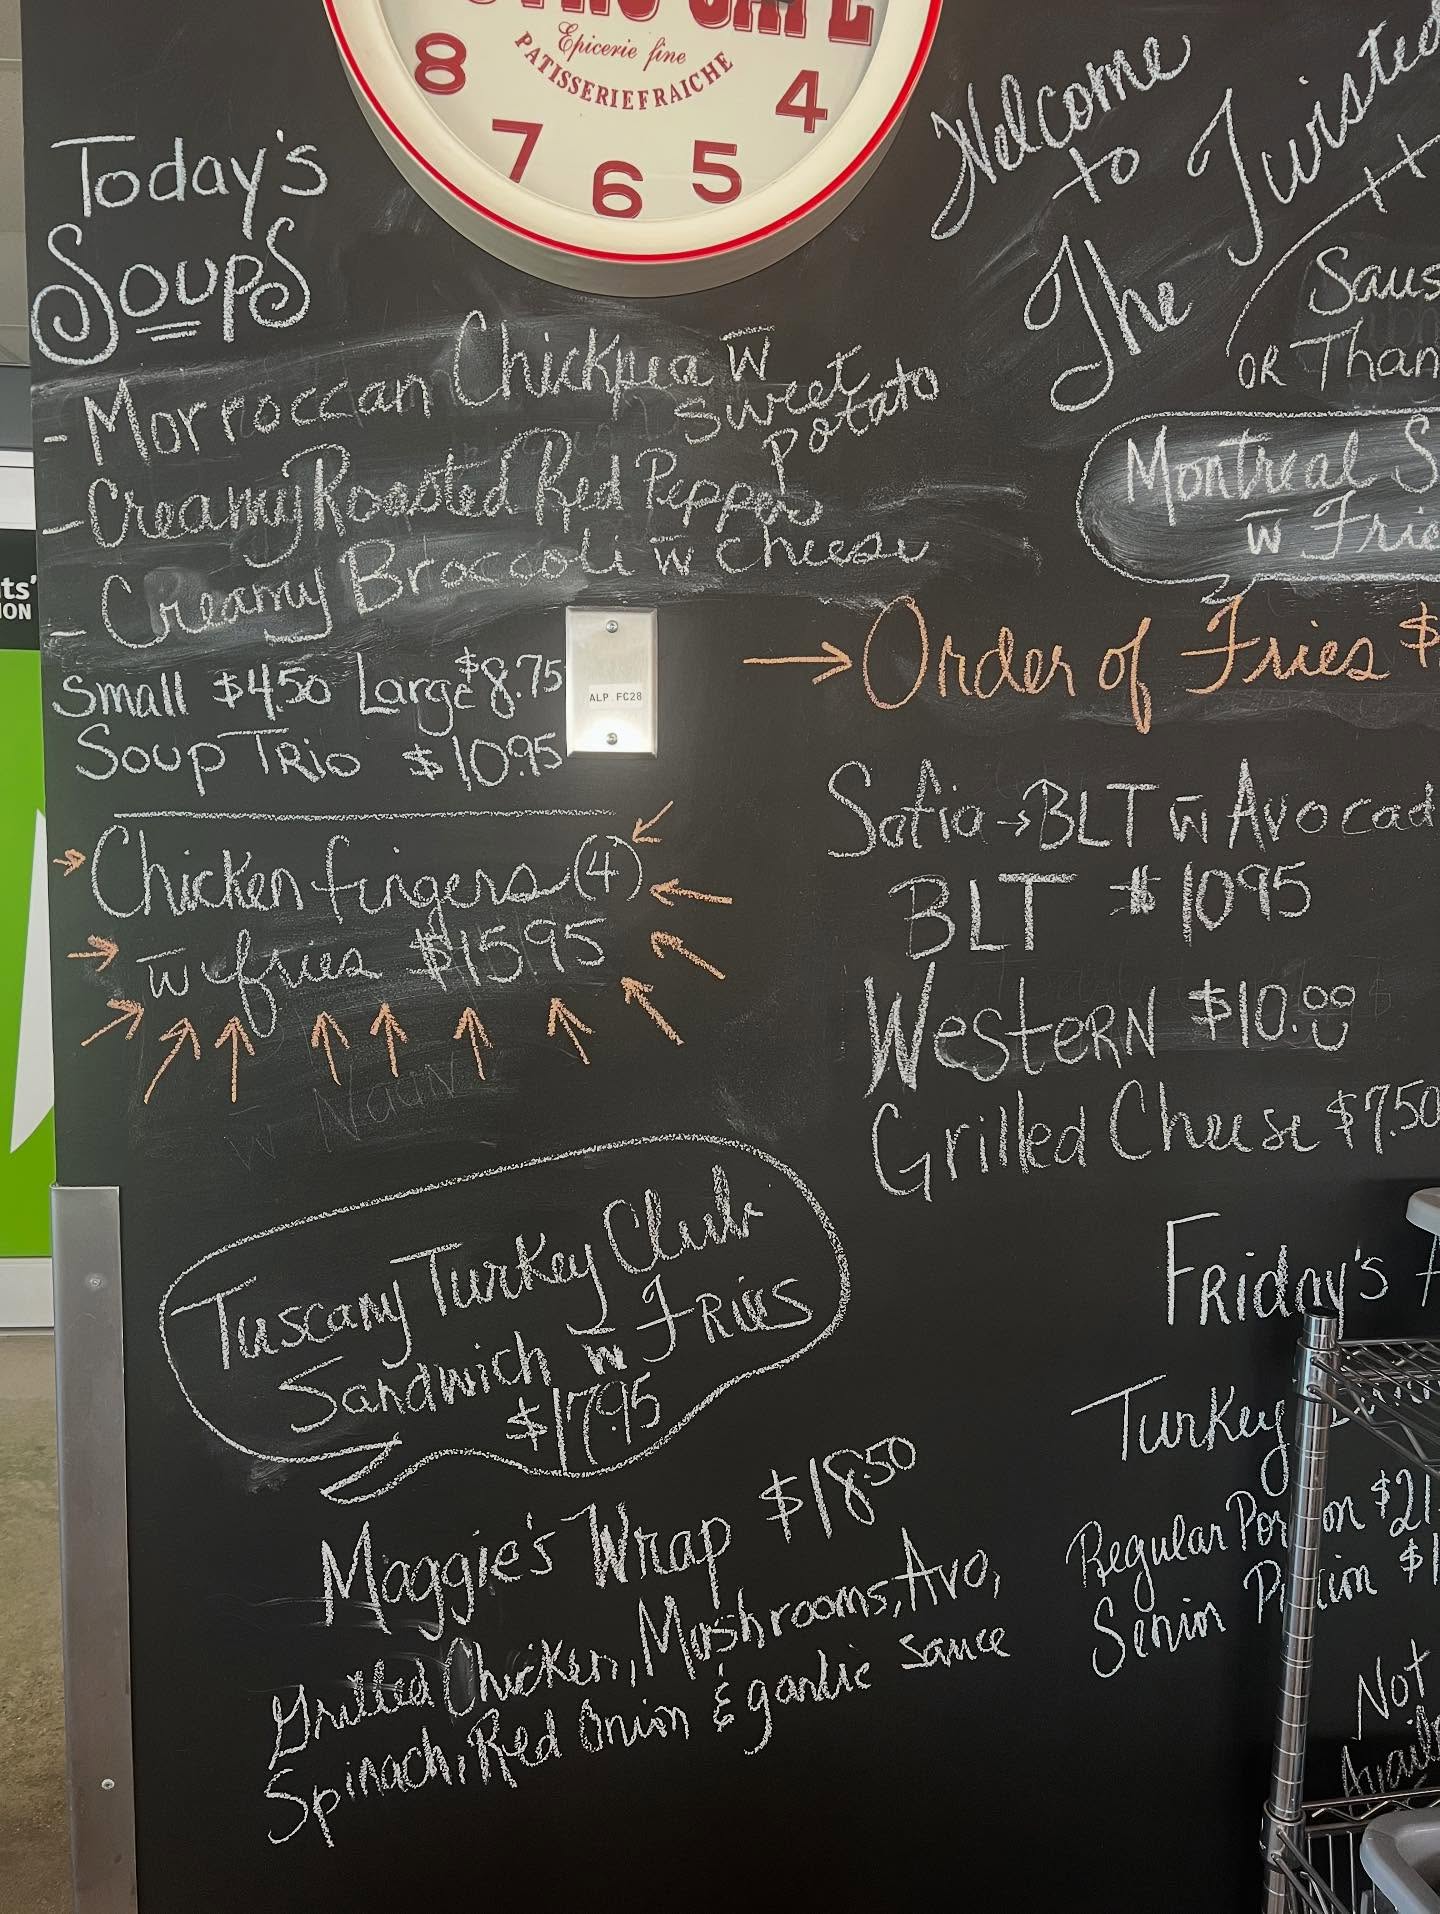 Epicerie fine
PATISSERIE FRAICHE
8 7 6 5 4
Today's
Soups
- Morroccan Chickpea w̄
sweet
potato
- Creamy Roasted Red Pepper
- Creamy Broccoli w̄ cheese
Small $4.50 Large $8.75
Soup Trio $10.95
ALP FC28
Chicken fingers (4)
w̄ fries $15.95
w Naan
Tuscany Turkey Club
Sandwich w̄ Fries
$17.95
Maggie's Wrap $18.50
Grilled Chicken, Mushrooms, Avo,
Spinach, Red Onion & garlic sauce
Welcome
to
The Twisted
Saus
OR Than
Montreal S
w̄ Frie
→ Order of Fries $
Sofia → BLT w̄ Avocad
BLT $10.95
Western $10.00
Grilled Cheese $7.50
Friday's
Turkey
Regular Portion $21
Senior Portion $1
Not
Avail